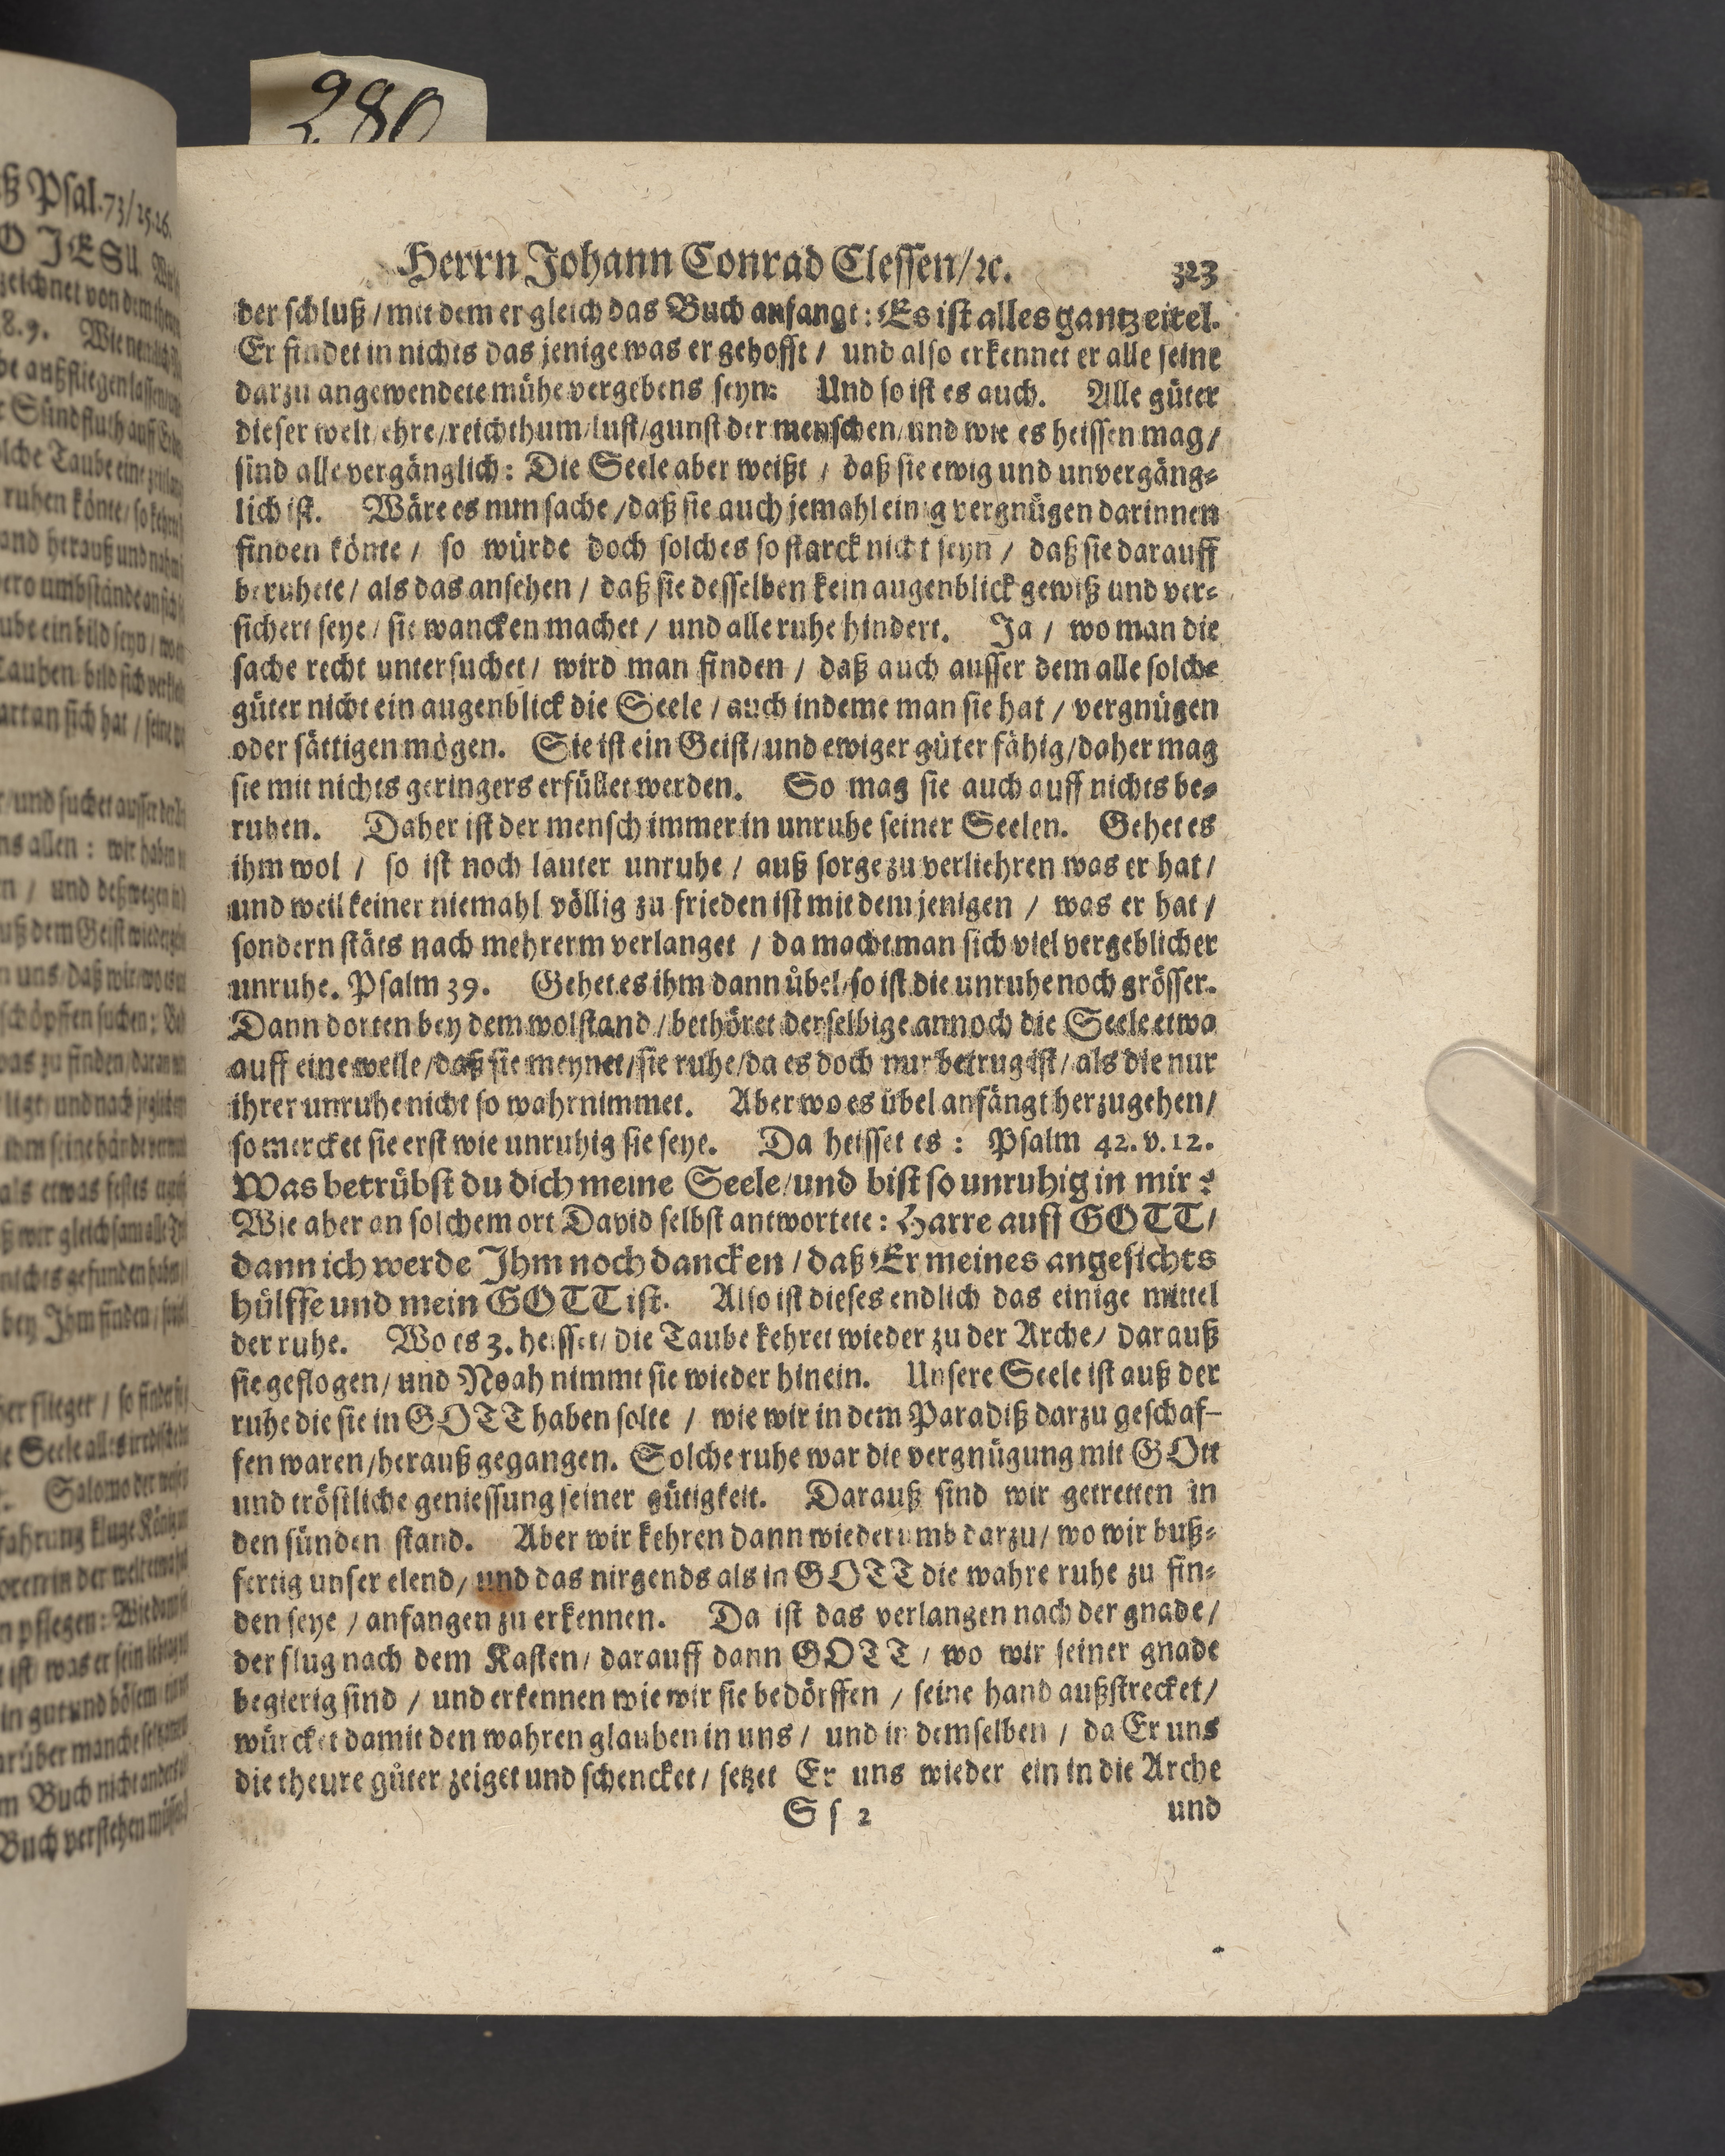 280
Herrn Johann Conrad Clessen/ꝛc. 323
der schluß / mit dem er gleich das Buch anfangt: Es ist alles gantz eitel.
Er findet in nichts das jenige was er gehofft / und also erkennet er alle seine
darzu angewendete mühe vergebens seyn: Und so ist es auch. Alle güter
dieser welt/ ehre/ reichthum/ lust/ gunst der menschen/ und wie es heissen mag/
sind alle vergänglich: Die Seele aber weißt / daß sie ewig und unvergäng⸗
lich ist. Wäre es nun sache / daß sie auch jemahl einig vergnügen darinnen
finden könte / so würde doch solches so starck nicht seyn / daß sie darauff
beruhete / als das ansehen / daß sie desselben kein augenblick gewiß und ver⸗
sichert seye / sie wancken machet / und alle ruhe hindert. Ja / wo man die
sache recht untersuchet/ wird man finden / daß auch ausser dem alle solche
güter nicht ein augenblick die Seele / auch indeme man sie hat / vergnügen
oder sättigen mögen. Sie ist ein Geist/ und ewiger güter fähig/ daher mag
sie mit nichts geringers erfüllet werden. So mag sie auch auff nichts be⸗
ruhen. Daher ist der mensch immer in unruhe seiner Seelen. Gehet es
ihm wol / so ist noch lauter unruhe / auß sorge zu verliehren was er hat /
und weil keiner niemahl völlig zu frieden ist mit dem jenigen / was er hat /
sondern stäts nach mehrerm verlanget / da macht man sich viel vergeblicher
unruhe. Psalm 39. Gehet es ihm dann übel/ so ist die unruhe noch grösser.
Dann dorten bey dem wolstand / bethöret derselbige annoch die Seele etwa
auff eine weile / daß sie meynet / sie ruhe / da es doch nur betrug ist / als die nur
ihrer unruhe nicht so wahrnimmet. Aber wo es übel anfängt herzugehen /
so mercket sie erst wie unruhig sie seye. Da heisset es : Psalm 42. v. 12.
Was betrübst du dich meine Seele/ und bist so unruhig in mir?
Wie aber an solchem ort David selbst antwortete: Harre auff GOTT /
dann ich werde Ihm noch dancken / daß Er meines angesichts
hülffe und mein GOTT ist. Also ist dieses endlich das einige mittel
der ruhe. Wo es 3. heisset/ die Taube kehret wieder zu der Arche/ darauß
sie geflogen/ und Noah nimmt sie wieder hinein. Unsere Seele ist auß der
ruhe die sie in GOTT haben solte / wie wir in dem Paradiß darzu geschaf⸗
fen waren/ herauß gegangen. Solche ruhe war die vergnügung mit GOtt
und tröstliche geniessung seiner gütigkeit. Darauß sind wir getretten in
den sünden stand. Aber wir kehren dann wiederumb darzu / wo wir buß⸗
fertig unser elend/ und das nirgends als in GOTT die wahre ruhe zu fin⸗
den seye / anfangen zu erkennen. Da ist das verlangen nach der gnade /
der flug nach dem Kasten/ darauff dann GOTT / wo wir seiner gnade
begierig sind / und erkennen wie wir sie bedörffen / seine hand außstrecket /
würcket damit den wahren glauben in uns / und in demselben / da Er uns
die theure güter zeiget und schencket / setzet Er uns wieder ein in die Arche
Ss 2 und